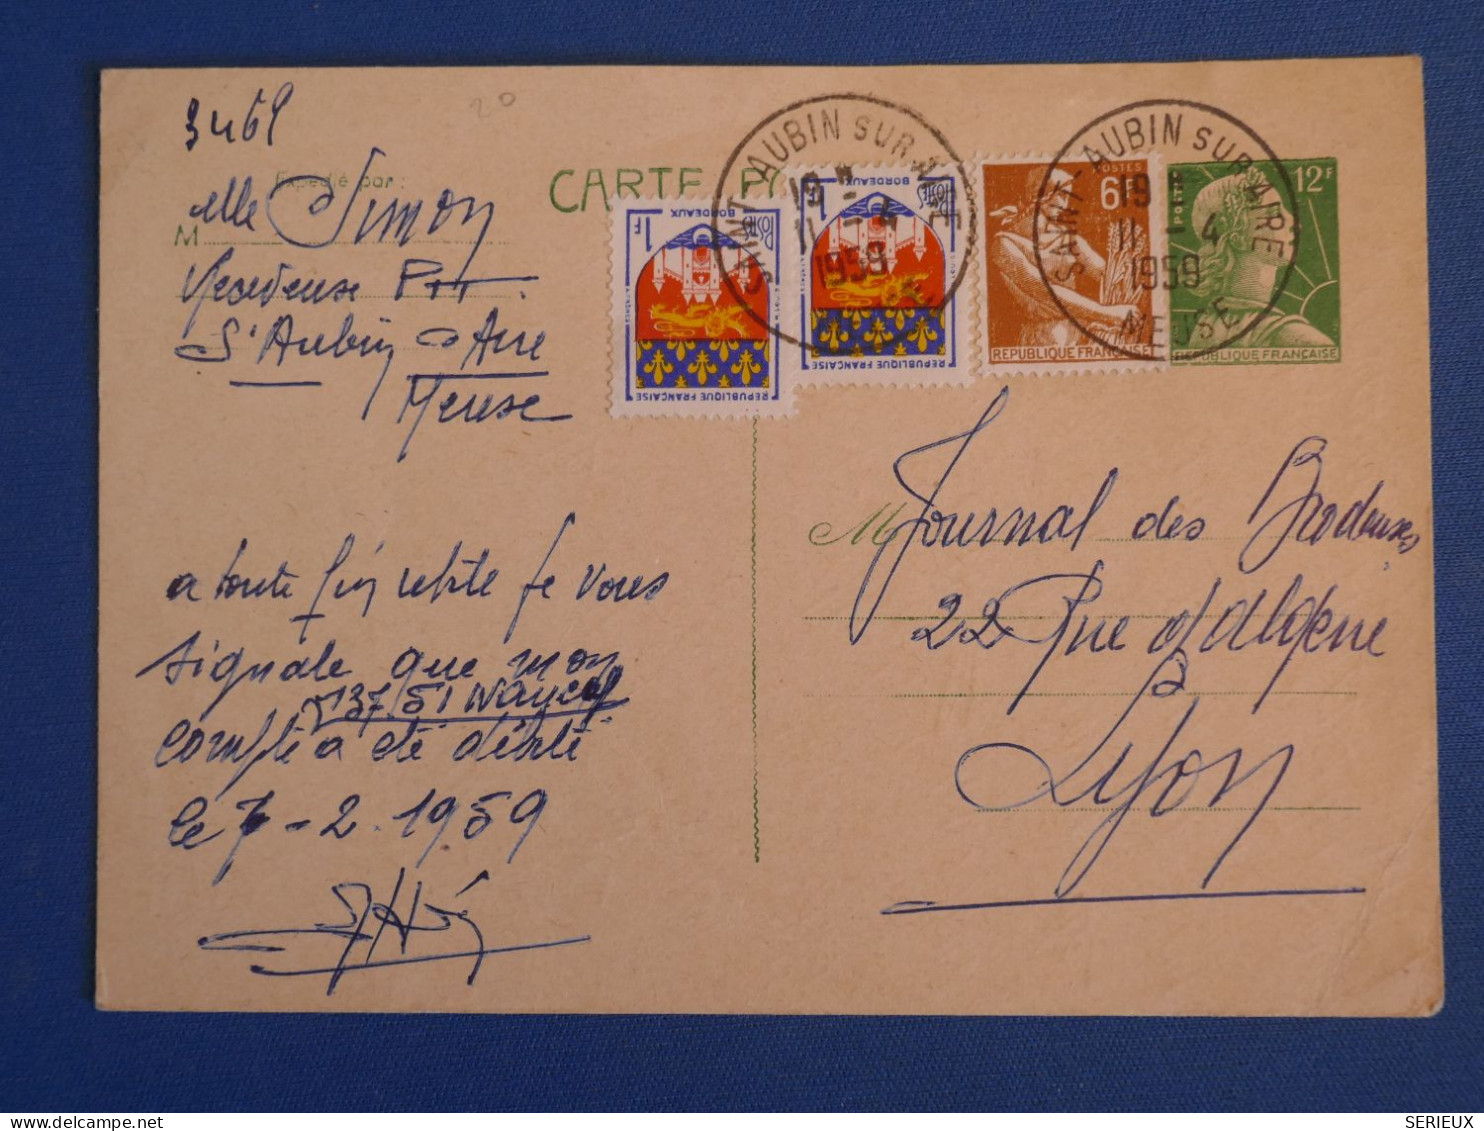 3469
20
Expédié par :
CARTE P
M elle Simon
Receveuse PTT
St Aubin s Aire
Meuse
POSTES
1F
BORDEAUX
REPUBLIQUE FRANÇAISE
POSTES
1F
BORDEAUX
REPUBLIQUE FRANÇAISE
POSTES
6F
REPUBLIQUE FRANÇAISE
12F
REPUBLIQUE FRANÇAISE
SAINT-AUBIN SUR AIRE
19 H
11 - 4
1959
MEUSE
SAINT-AUBIN SUR AIRE
19 H
11 - 4
1959
MEUSE
a toute fin utile je vous
signale que mon
137.51 Nancy
compte a été débité
le 7-2.1959
M Journal des Brodeuses
22 Rue d'Algérie
Lyon
SERIEUX